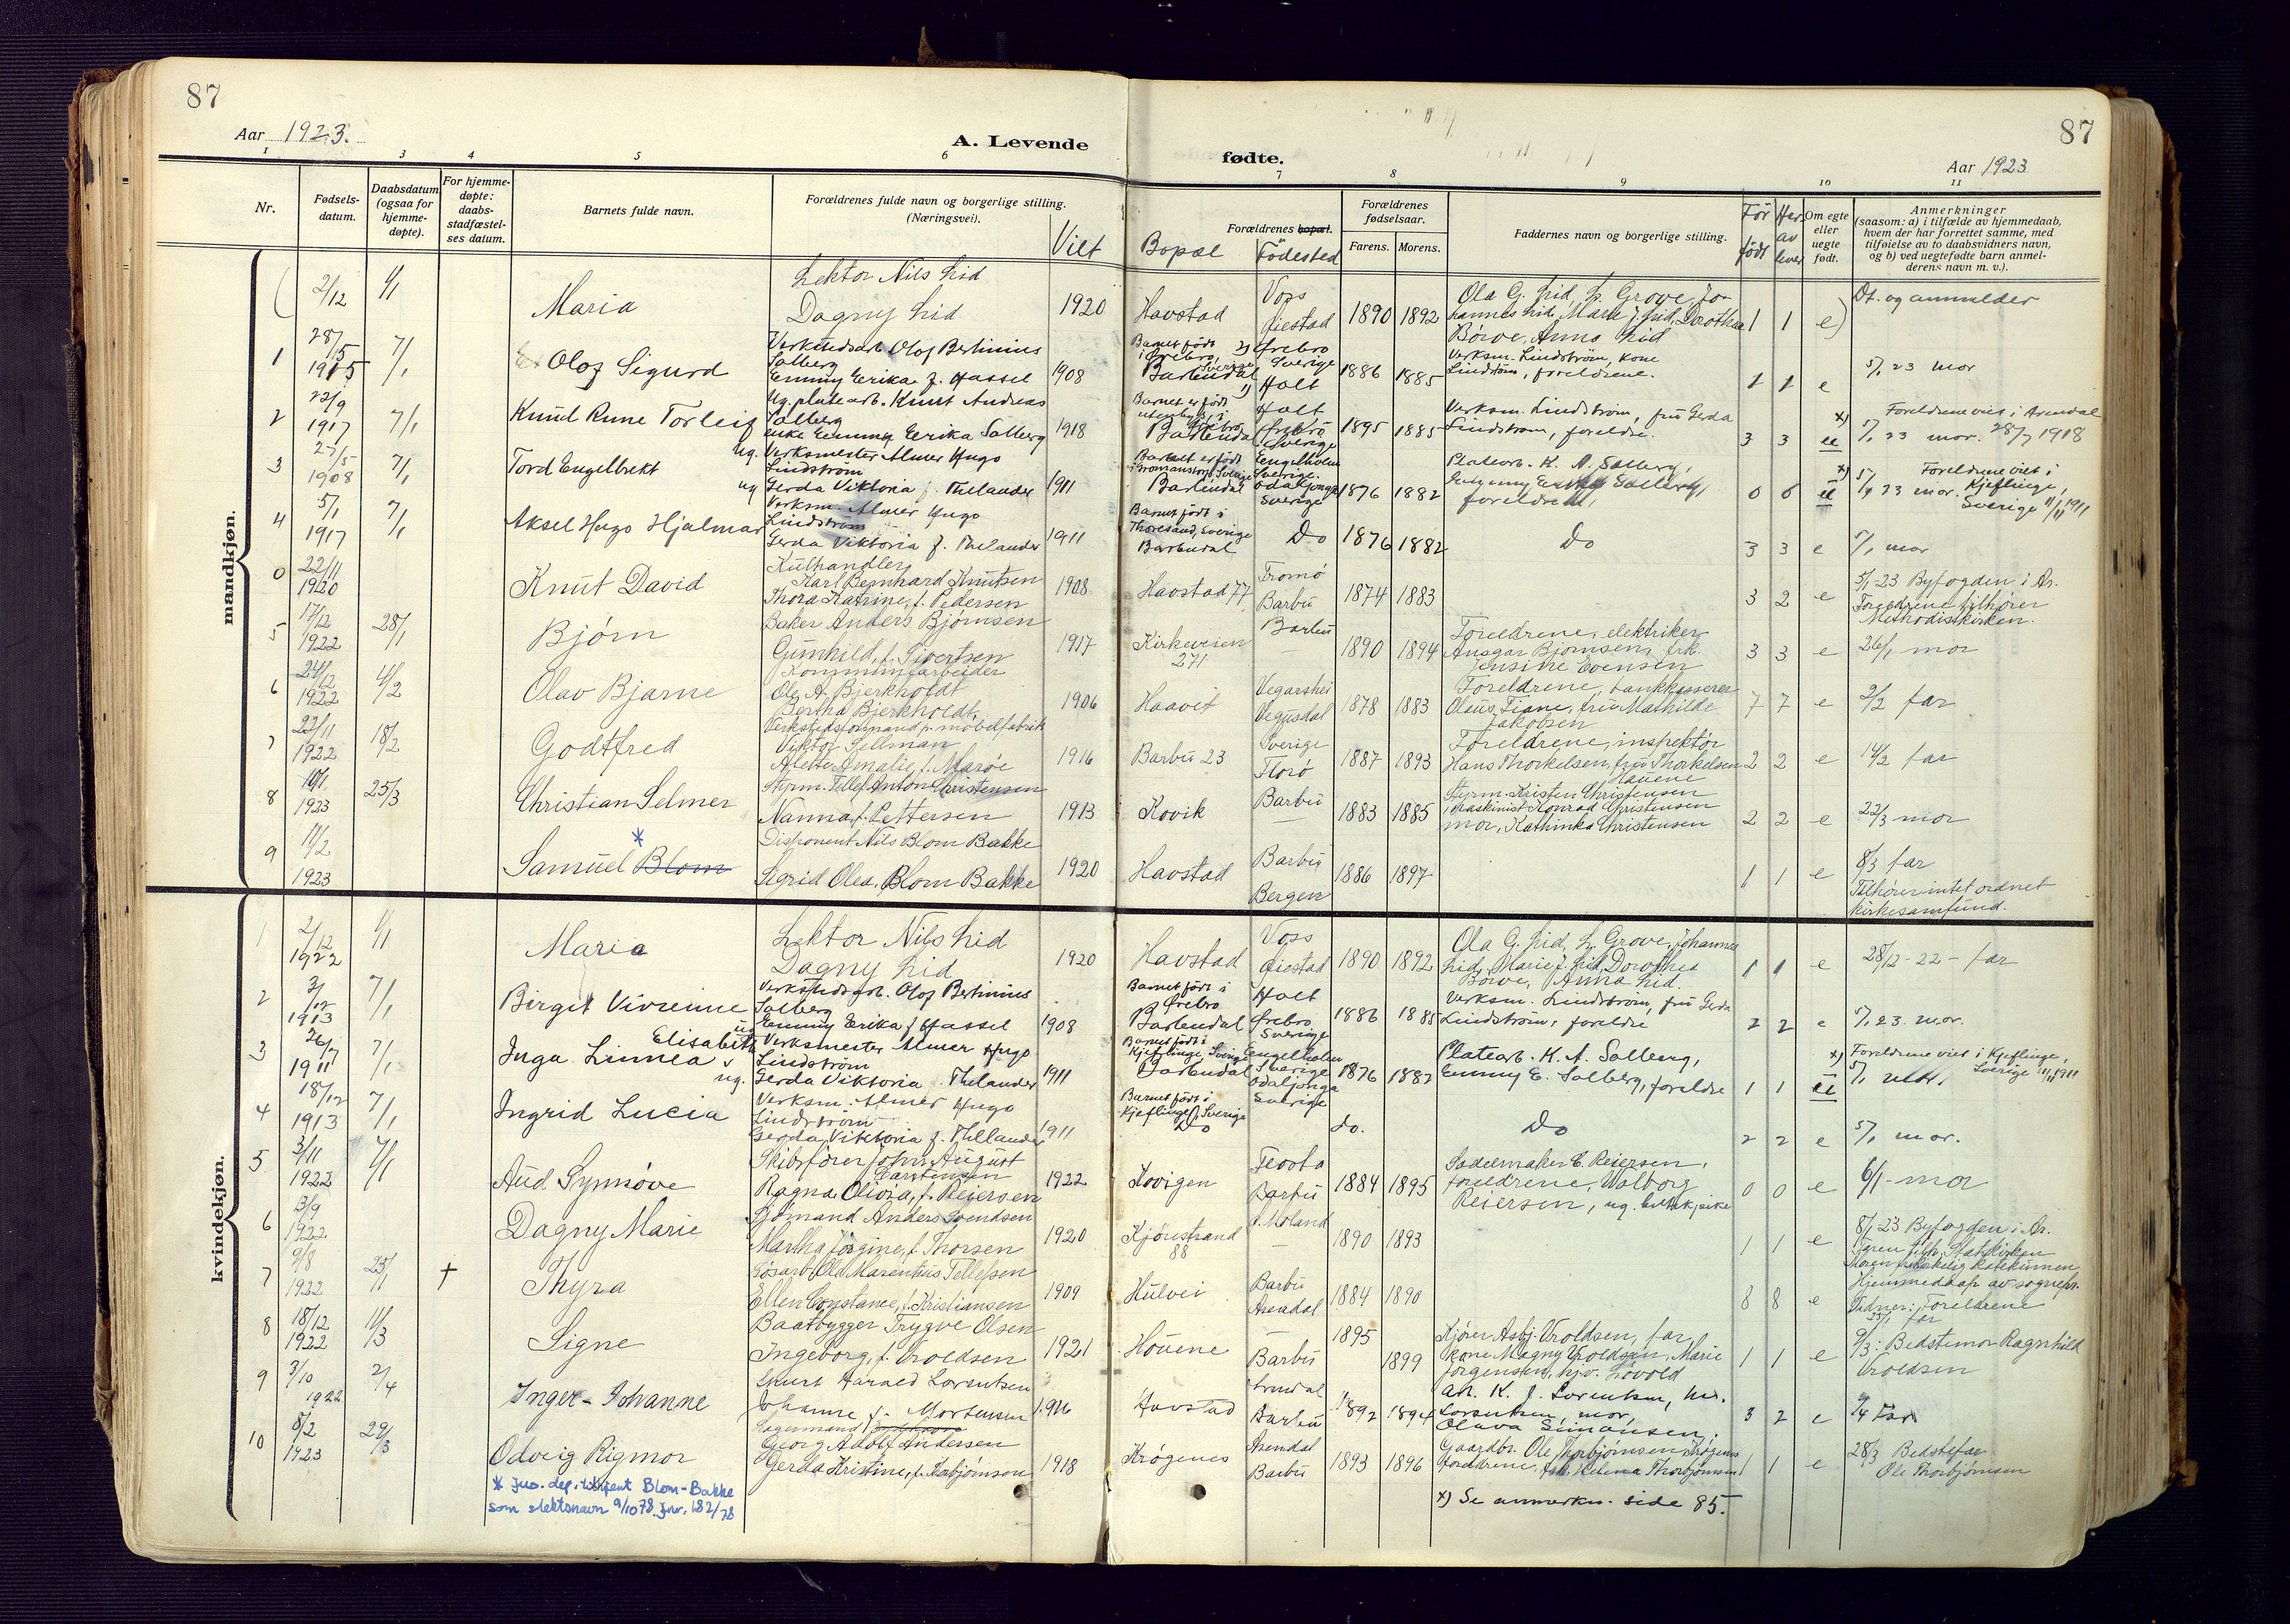 87
87
Aar 1923.
A. Levende
fødte.
Aar 1923
1 3 4 5 6 7 8 9 10 11
Nr.
Fødsels-
datum.
Daabsdatum
(ogsaa for
hjemme-
døpte).
For hjemme-
døpte:
daabs-
stadfæstel-
ses datum.
Barnets fulde navn.
Forældrenes fulde navn og borgerlige stilling.
(Næringsvei).
Viet
Forældrenes bopæl.
Bopæl
Födested
Forældrenes
fødselsaar.
Farens. Morens.
Faddernes navn og borgerlige stilling.
Før
født
Her
av
lever
Om egte
eller
uegte
født.
Anmerkninger
(saasom: a) i tilfælde av hjemmedaab,
hvem der har forrettet samme, med
tilføielse av to daabsvidners navn,
og b) ved uegtefødte barn anmel-
derens navn m. v.).
mandkjøn.
( 2/12 1/1 Maria
Lektor Nils Lid
Dagny Lid
1920 Havstad
Voss
Giestad
1890 1892
Ola G. Lid, L. Grove, Jo-
hannes Lid, Marie J. Lid, Dorothea
Börve, Anna Lid
1 1 e)
Dt. og anmelder
1 28/5 1915 7/1 Olof Sigurd
Verkstedsarb. Olof Bertinius
Solberg
Emmy Erika f. Hassel
1908
Barnet født
i Örebro, Sverige
Barbudal
2) Örebro
Sverige
1) Holt
1886 1885
Verksm. Lindström, kone
Lindström, foreldrene.
1 1 e
5/1 23 mor
2 22/9 1917 7/1 Knud Rune Torleif
Ug. platearb. Knut Andreas
Solberg
enke Emmy Erika Solberg
1918
Barnet er født
utenbys, i
Örebro
Barbudal
Holt
Örebro
Sverige
1895 1885
Verksm. Lindström, fru Gerda
Lindström, foreldre.
3 3 u
x) Foreldrene viet i Arendal
5/1 23 mor. 28/7 1918
3 27/5 1908 7/1 Tord Engelbrekt
ug. Verksmester Almer Hugo
Lindström
ug Gerda Viktoria f. Thelander
1911
Barnet er født
i Gromanstorp, Sverige
Barbudal
Engelholm
Sverige.
Odaljonga
Sverige
1876 1882
Platearb. K. A. Solberg,
Emmy Erika Solberg,
foreldrene,
0 0 u
x) Foreldrene viet i
5/1 23 mor. Kjeflinge,
Sverige 11/11 1911
4 5/1 1917 7/1 Aksel Hugo Hjalmar
Verksm. Almer Hugo
Lindström
Gerda Viktoria f. Thelander
1911
Barnet født i
Thoresund, Sverige
Barbudal
Do 1876 1882 Do
3 3 e
5/1 mor
0 22/11 1920 Knut David
Kulhandler
Karl Bernhard Knutsen
Thora Katrine, f. Pedersen
1908 Havstad 77
Tromö
Barbu
1874 1883
3 2 e
5/1-23 Byfogden i Ar.
Foreldrene tilhører
Methodistkirken.
5 17/12 1922 28/1 Bjørn
Baker Anders Bjørnsen
Gunhild, f. Sivertsen
1917
Kirkeveien
271
Barbu
—
1890 1894
Foreldrene, elektriker
Ansgar Bjørnsen, frk.
Jensine Evensen
3 3 e
26/1 mor
6 24/12 1922 4/2 Olav Bjarne
Kommunearbeider
Ole A. Bjerkholdt
Bertha Bjerkholdt,
1906 Haavet
Vegarshei
Vegusdal
1878 1883
Foreldrene, bankkasserer
Olaus Tiane, fru Mathilde
Jakobsen
7 7 e
2/2 far
7 22/11 1922 18/2 Godtfred
Verkstedsformand p. möbelfabrik
Viktor Sellman
Aletter Amalie f. Marøe
1916 Barbu 23
Sverige
Florö
1887 1893
Foreldrene, inspektör
Hans Thorkelsen, fru Thorkelsen
Hauene
2 2 e
14/2 far
8 10/1 1923 25/3 Christian Selmer
Styrm. Tellef Anton Christensen
Nanna, f. Pettersen
1913 Kovik
Barbu
—
1883 1885
Styrm. Kristen Christensen
maskinist Konrad Christensen
mor, Kathinka Christensen
2 2 e
22/3 mor
9 17/2 1923 Samuel Blom *
Disponent Nils Blom Bakke
Sigrid Olea, Blom Bakke
1920 Havstad
Barbu
Bergen
1886 1897
1 1 e
8/3 far
Tilhører intet ordnet
kirkesamfund.
kvindekjøn.
1 2/12 1922 1/1 Maria
Lektor Nils Lid
Dagny Lid
1920 Havstad
Voss
Giestad
1890 1892
Ola G. Lid, L. Grove, Johannes
Lid, Marie J. Lid, Dorothea
Börve, Anna Lid.
1 1 e
28/12-22 - far
2 3/12 1913 7/1 Birgit Vivienne
Verkstedsarb. Olof Bertinius
Solberg
Emmy Erika f Hassel
1908
Barnet født i
Örebro
Barbudal
Holt
Örebro
Sverige
1886 1885
Verksm. Lindström, fru Gerda
Lindström, foreldre
2 2 e
5/1 23. mor.
3 26/7 1911 7/1 Inga Linnea Elisabeth
ug Verksmester Almer Hugo
Lindström
ug. Gerda Viktoria f. Thelander
1911
Barnet født i
Kjeflinge, Sverige
Barbudal
Engelholm
Sverige
Odaljonga
Sverige
1876 1882
Platearb. K. A. Solberg,
Emmy E. Solberg, foreldre
1 1 u
x) Foreldrene viet i Kjeflinge,
5/1 mor. Sverige 11/11 1911
4 18/12 1913 7/1 Ingrid Lucia
Verksm. Almer Hugo
Lindström
Gerda Viktoria f. Thelander
1911
Barnet født i
Kjeflinge, Sverige
Do do. Do
2 2 e
5/1 mor.
5 3/11 1922 7/1 Aud Synnøve
Skibsfører John August
Carstensen
Ragna Olivia, f. Reiersen
1922 Kovigen
Flosta
Barbu
1884 1895
Sadelmaker E. Reiersen,
foreldrene, Walborg
Reiersen, ug.
0 0 e
6/1 - mor
6 13/9 1922 Dagny Marie
Sjømand Anders Svendsen
Martha Jørgine, f. Thorsen
1920
Kjørestrand
88
Ø. Moland
—
1890 1893
1 1 e
8/1 23 Byfogden i Ar.
Faren tilh. Statskirken
7 9/8 1922 25/1 † Thyra
Løsarb. Ole Marentius Tellefsen
Ellen Constance, f. Kristiansen
1909 Hulvei
Barbu
Arendal
1884 1890
8 8 e
Hjemmedøpt av sognepr.
Vidner: Foreldrene
25/1 far
8 18/12 1922 11/3 Signe
Baatbygger Trygve Olsen
Ingeborg, f. Vroldsen
1921 Houene
—
Barbu
1895 1899
Kjører Asbj. Vroldsen, far,
kone Magny Vroldsen, Marie
Jørgensen, Løvold
1 1 e
9/3: Bedstemor Ragnhild
Vroldsen
9 3/10 1922 2/4 Inger-Johanne
Harald Lorentsen
Johanne f. Mortensen
1916 Havstad
Arendal
Barbu
1892 1894
K. J. Lorentsen,
Lorentsen, mor,
Olava Simonsen.
3 2 e
Far
10 8/2 1923 29/3 Odvig Rigmor
Georg Adolf Andersen
Gerda Kristine, f. Thorbjørnsen
1918 Krøgenes
Arendal
Barbu
1893 1896
Gaardbr. Ole Thorbjørnsen, Krøgenes
foreldrene, frk. Helena Thorbjørnsen
1 1 e
28/3 Bedstefar
Ole Thorbjørnsen
* Jus. dep. Blom-Bakke
som slektsnavn 9/10 78. Jnr. 182/78
x) Se anmerkn. side 85.